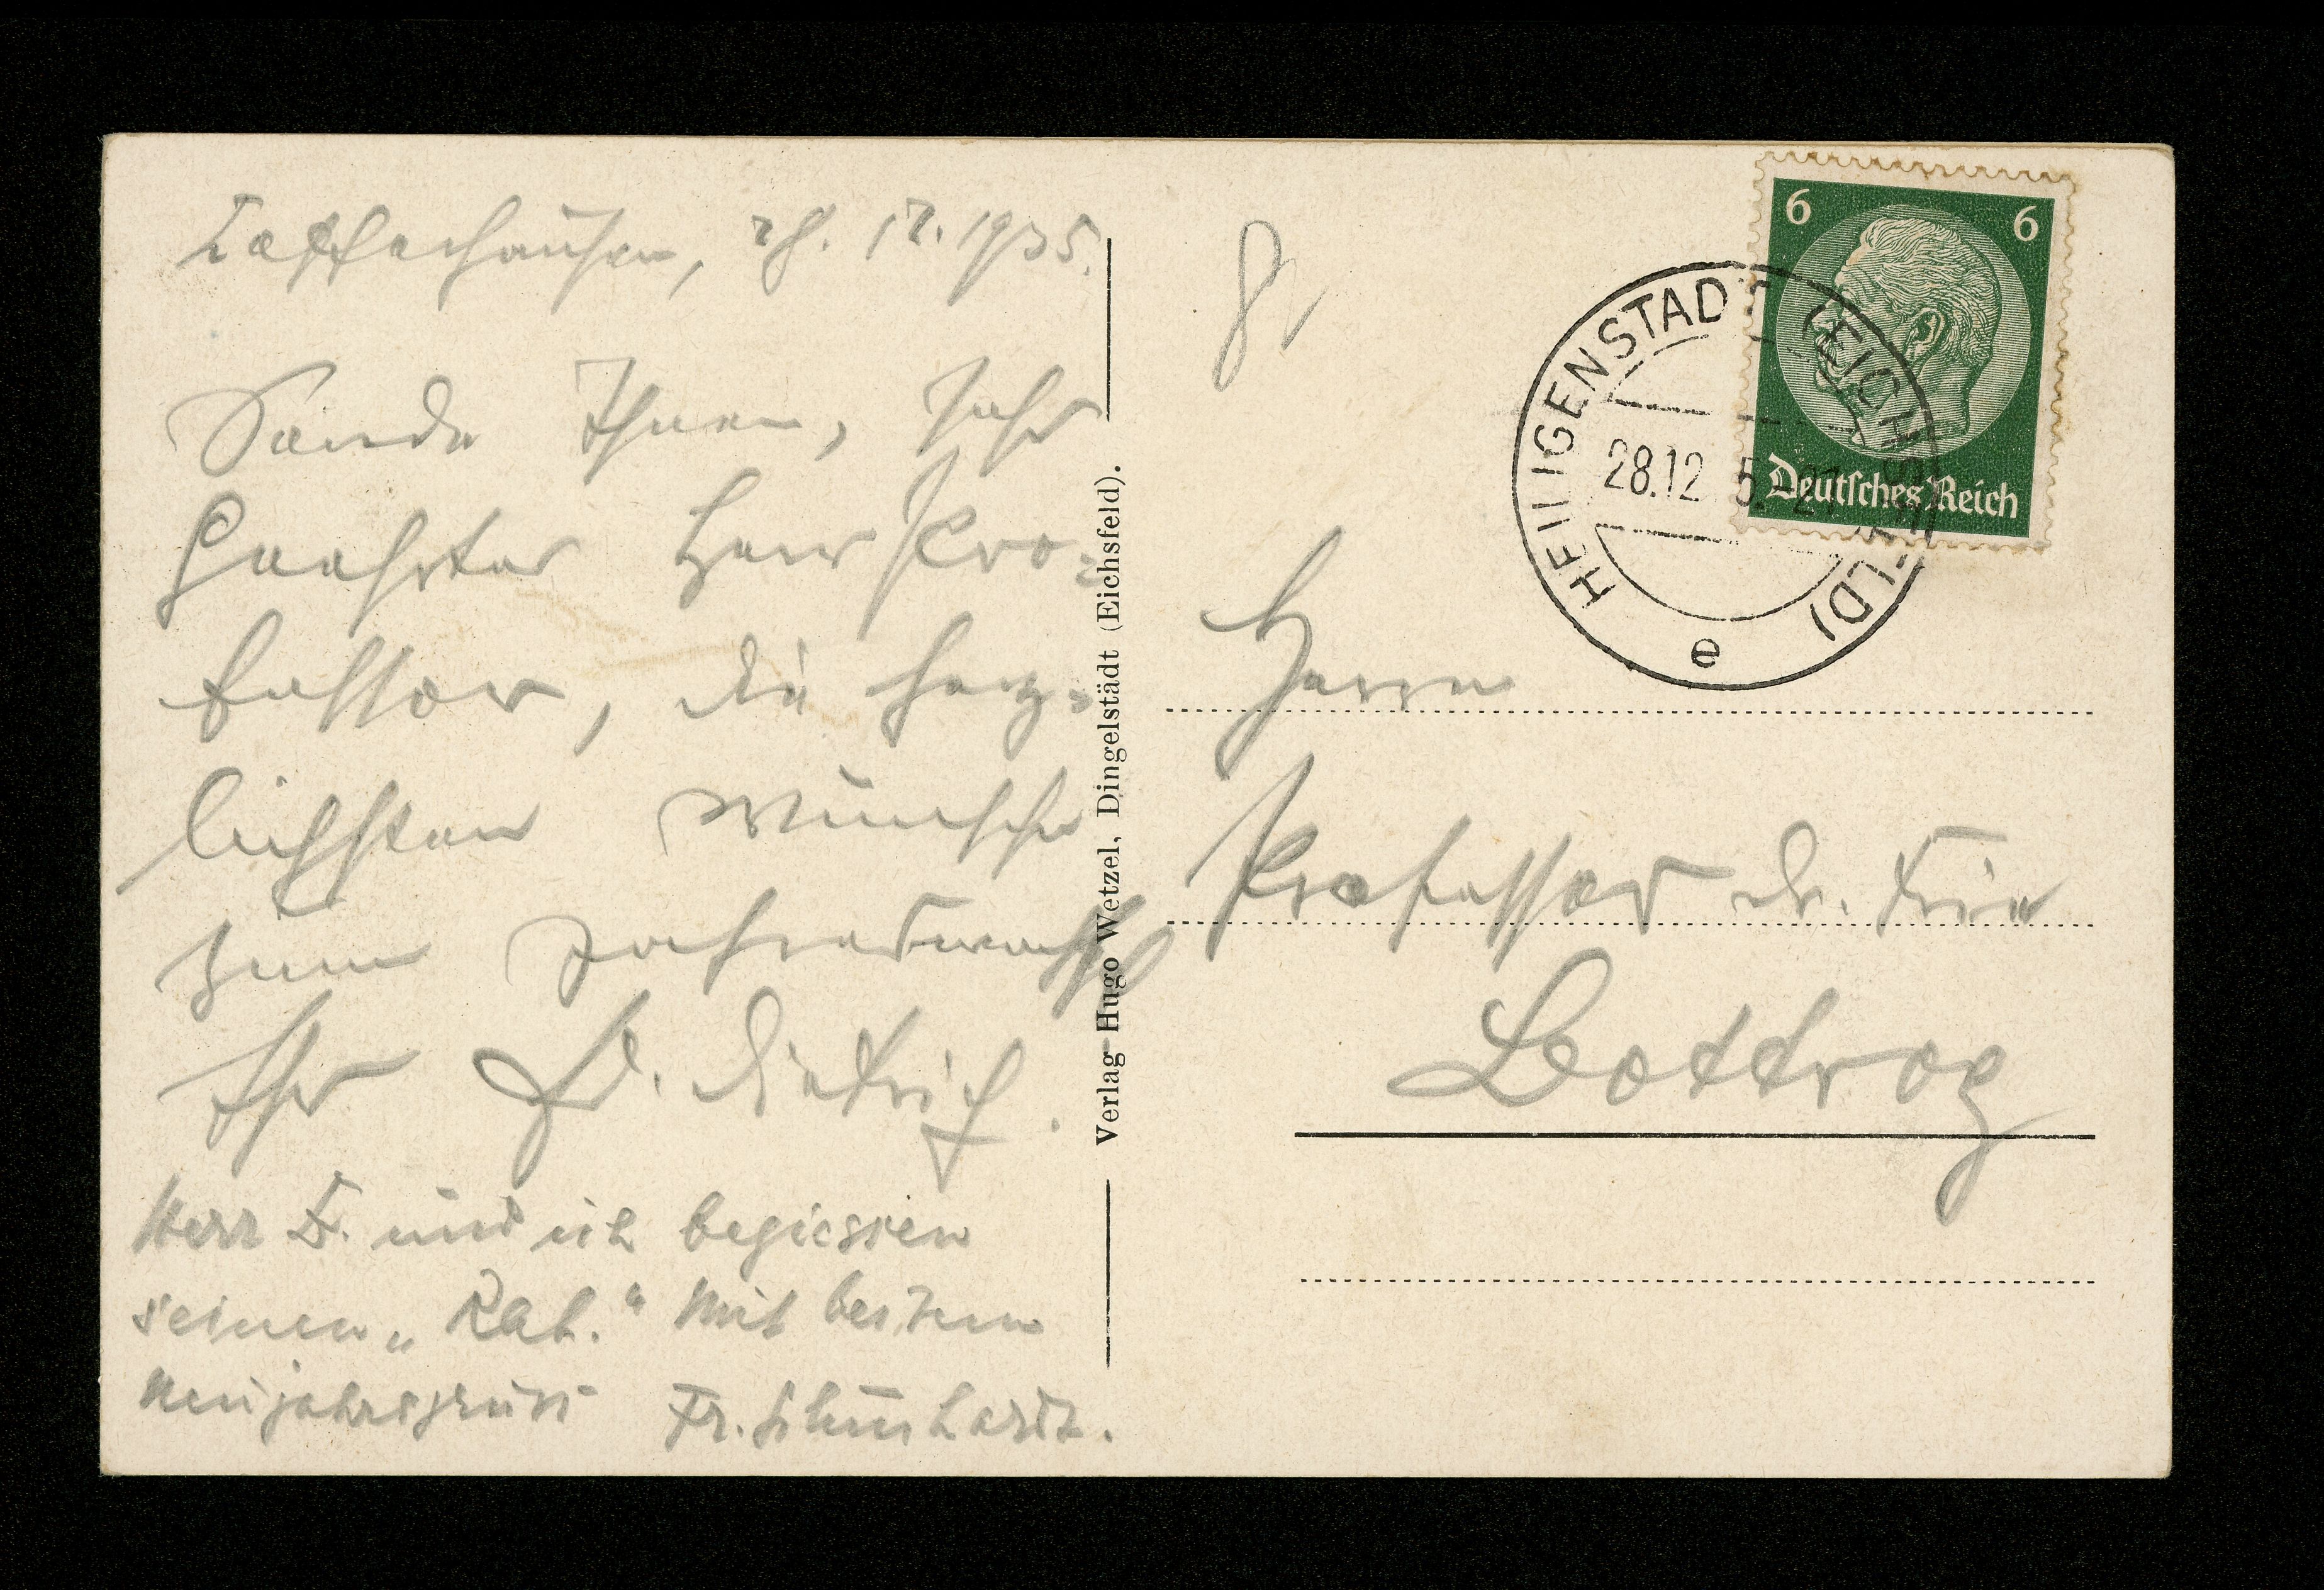 Kefferhausen, 28. 12. 1935.
Sende Ihnen, sehr
geehrter Herr Pro-
fessor, die herz-
lichsten Wünsche
zum Jahreswechsel
Ihr Dietrich.
Herr D. und ich begiessen
seinen „Rat.“ Mit bestem
Neujahrsgruss Fr.
Verlag Hugo Wetzel, Dingelstädt (Eichsfeld).
6 6
Deutsches Reich
HEILIGENSTADT (EICHSFELD)
28.12
e
Herrn
Professor Dr.
Bottrop